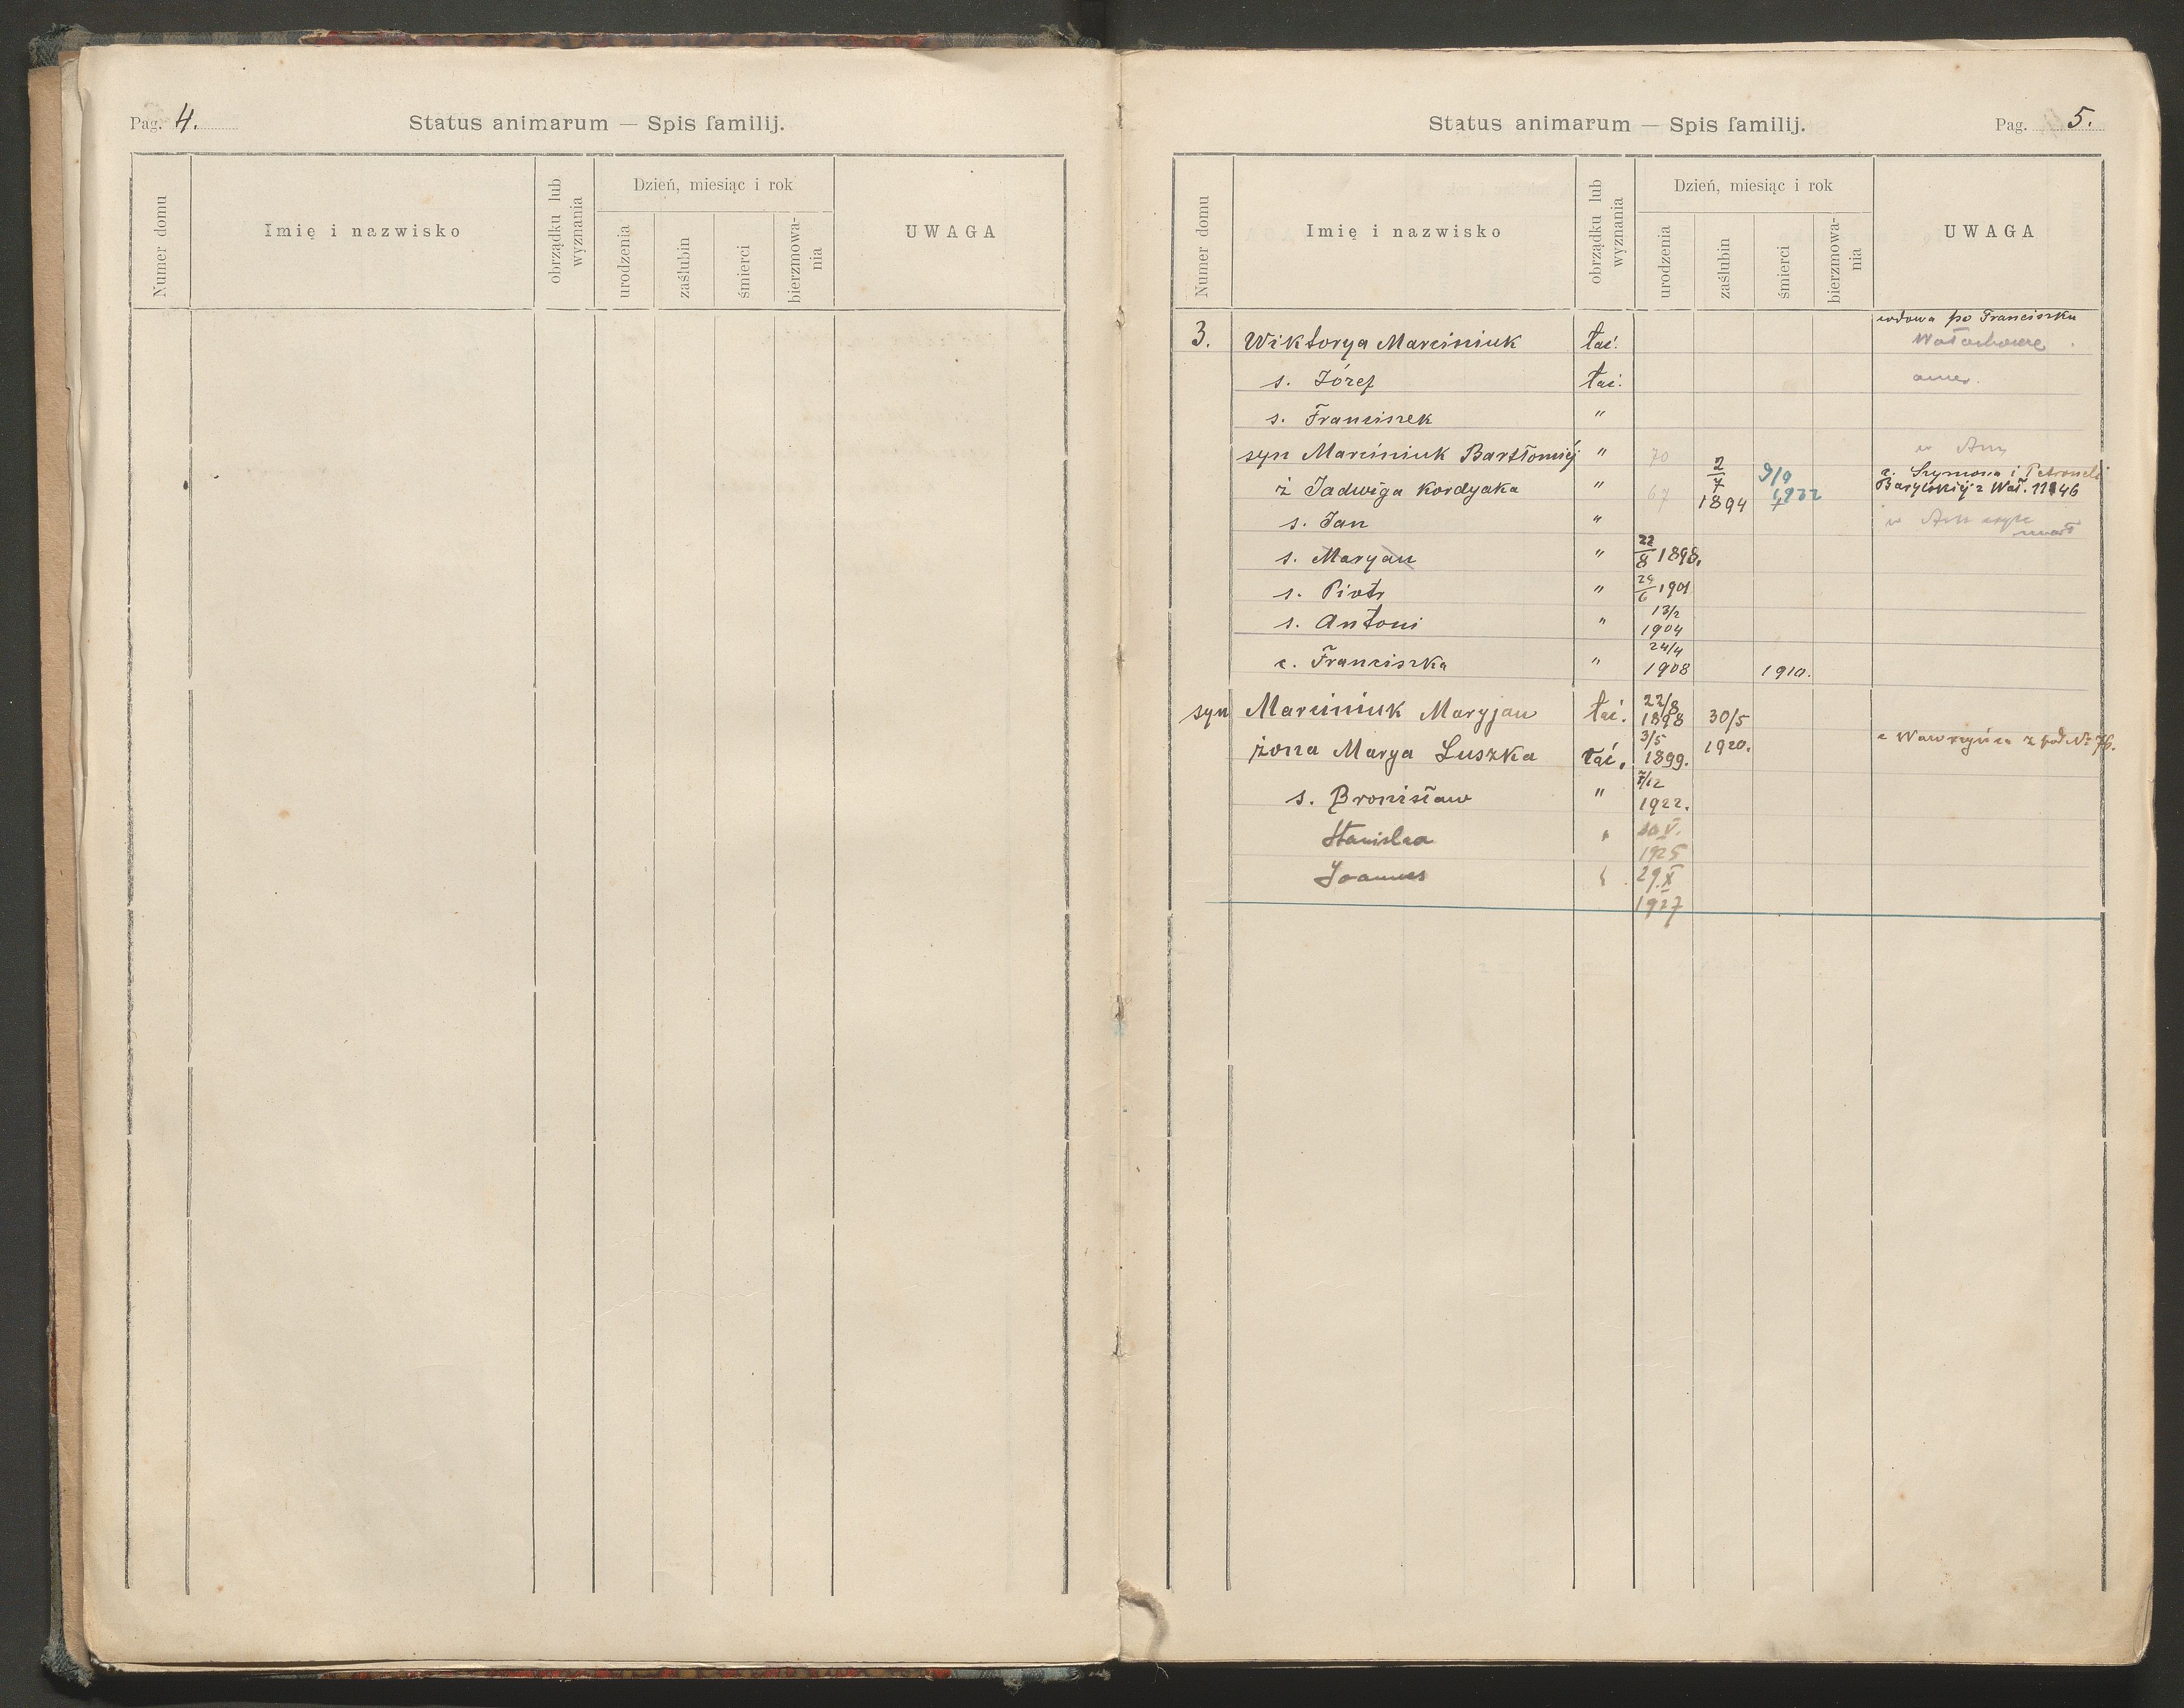 Pag. 4.
Status animarum — Spis familij.
Numer domu
Imię i nazwisko
obrządku lub wyznania
Dzień, miesiąc i rok
urodzenia
zaślubin
śmierci
bierzmowa-
nia
UWAGA
Status animarum — Spis familij.
Pag. 5.
Numer domu
Imię i nazwisko
obrządku lub wyznania
Dzień, miesiąc i rok
urodzenia
zaślubin
śmierci
bierzmowa-
nia
UWAGA
wdowa po Franciszku
3. Wiktorya Marciniuk łać.
s. Józef łać.
s. Franciszek "
syn Marciniuk Bartłomiéj " 70 w
ż Jadwiga Kordyaka " 67 2/7 1894 9/9 1922 c. Szymona i Petroneli
s. Jan " w
s. Maryan " 22/8 1898.
s. Piotr " 29/6 1901
s. Antoni " 13/2 1904
c. Franciszka " 24/4 1908 1910.
syn Marciniuk Maryjan łać. 22/8 1898 30/5 1920.
żona Marya Luszka łać. 3/5 1899. c Wawrzyńca z pod Nr 76.
s. Bronisław " 7/12 1922.
Stanislaa " V. 1925
Joannes 29.X 1927